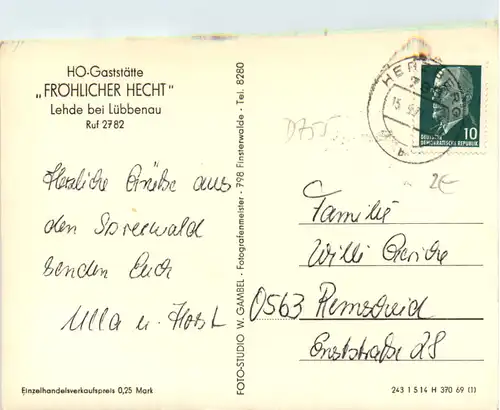 HO-Gaststätte
„FRÖHLICHER HECHT"
Lehde bei Lübbenau
Ruf 2782
Herzliche Grüße aus
den Spreewald
senden Euch
Ulla u. Horst
Einzelhandelsverkaufspreis 0,25 Mark
FOTO-STUDIO W. GAMBEL · Fotografenmeister · 798 Finsterwalde · Tel. 8280
HERZBERG
10
DEUTSCHE
DEMOKRATISCHE REPUBLIK
D755
2€
Familie
Willi
0563 Remscheid
Ernststraße 28
243 1 5 14 H 370 69 (1)